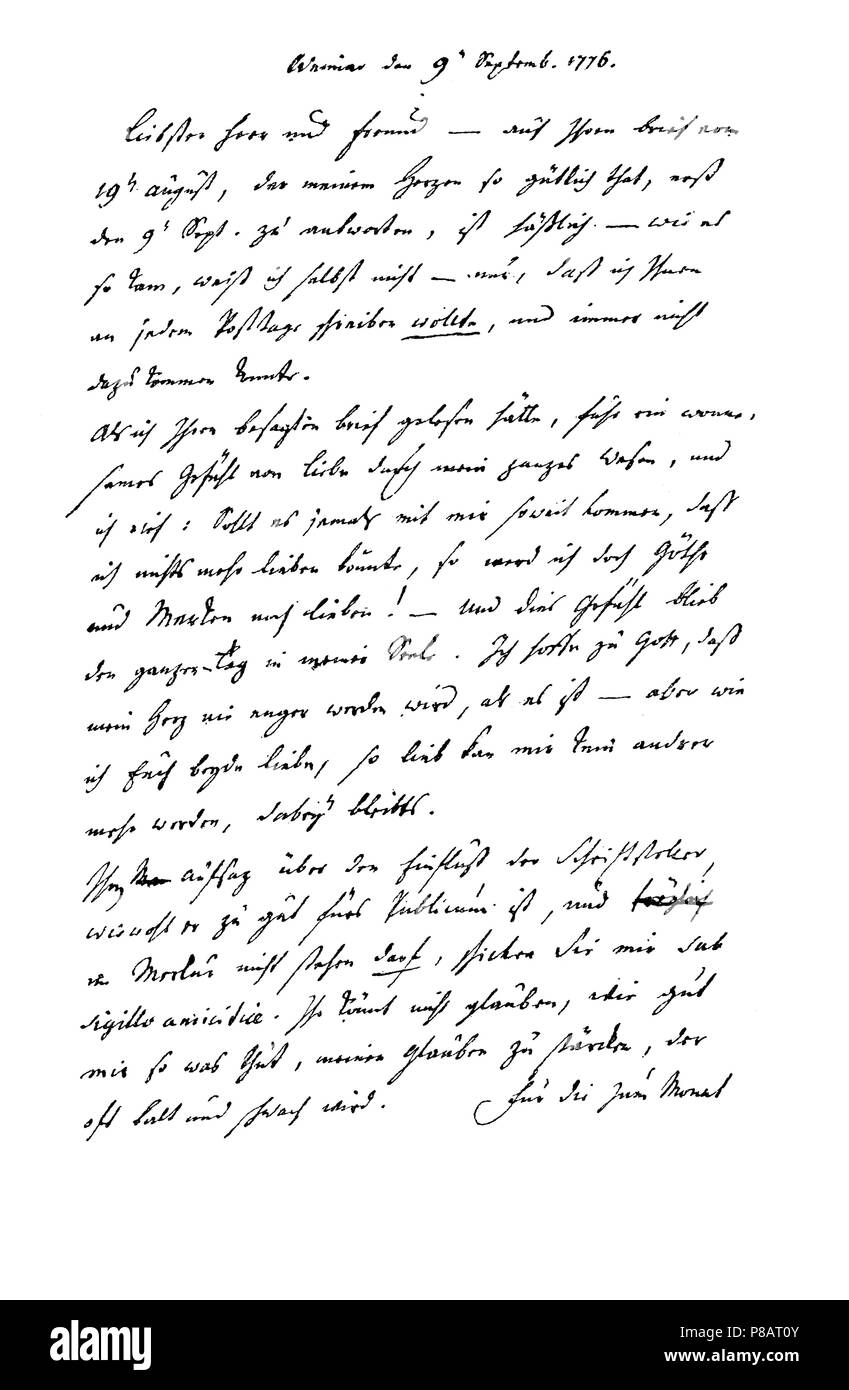 Weimar den 9ᵗ Septemb. 1776.
Liebster Herr und Freund — auf Ihren brief vom
19ᵗ august, der meinem Herzen so gütlich that, erst
den 9ᵗ Sept. zu antworten, ist häßlich. — wie es
so kam, weiß ich selbst nicht — nur, daß ich Ihnen
an jedem Posttage schreiben wollte, und immer nicht
dazu kommen konnte.
Als ich Ihren besagten brief gelesen hatte, fuhr ein wonne,
sames Gefühl von liebe durch mein ganzes Wesen, und
ich rief: Sollt es jemals mit mir soweit kommen, daß
ich nichts mehr lieben könnte, so werd ich doch Göthe
und Merken noch lieben! — Und dies Gefühl blieb
den ganzen Tag in meiner Seele. Ich hoffe zu Gott, daß
mein Herz nie enger werden wird, als es ist — aber wie
ich Euch beyde liebe, so lieb kan mir kein andrer
mehr werden, dabey bleibts.
Ihren aufsaz über den Einfluß der Schriftsteller,
wiewohl er zu gut fürs Publicum ist, und
im Merkur nicht stehen darf, schicken Sie mir sub
sigillo amicitiae. Ihr könnt nicht glauben, wie gut
mir so was thut, meinen Glauben zu stärken, der
oft kalt und schwach wird. Für die zum Monat
alamy
Image ID: P8AT0Y
www.alamy.com